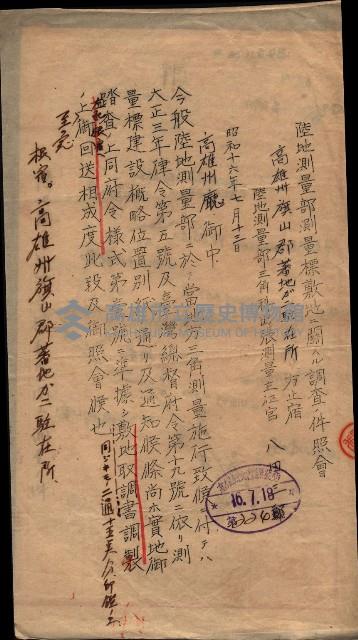 陸地測量部測量標敷地ニ關スル調査ノ件照會
高雄州旗山郡蕃地ガニ駐在所 方止宿
陸地測量部三角科出張測量主任官 八
昭和十六年七月十二日
高雄州廳 御中
今般陸地測量部ニ於テ當地方三角測量施行致候ニ付テハ
大正三年律令第五號及臺灣總督府令第十九號ニ依リ測
量標建設概略位置別紙ノ通リ及通知候條尚ホ實地御
踏査ノ上同府令様式第 號ニ準據シ敷地取調書調製
ノ上御回送相成度此段及御照會候也
至急
根室。高雄州旗山郡蕃地ガニ駐在所
16.7.18
高雄市立歷史博物館